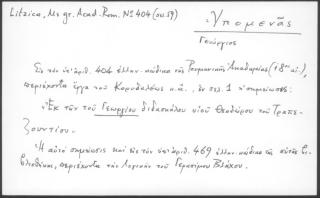 Litzica, Ms gr. Acad. Rom. No 404 (σελ. 59)
Ὑπομενᾶς
Γεώργιος
Εἰς τὸν ὑπ' ἀριθ. 404 ἑλλην. κώδικα τῆς Ρουμανικῆς Ἀκαδημίας (18ου αἰ.),
περιέχοντα ἔργα τοῦ Κορυδαλέως κ.ἄ., ἐν σελ. 1 σημείωσις:
"Ἐκ τῶν τοῦ Γεωργίου διδασκάλου υἱοῦ Θεοδώρου τοῦ Τραπε-
ζουντίου.
Ἡ αὐτὴ σημείωσις καὶ εἰς τὸν ὑπ' ἀριθ. 469 ἑλλην. κώδικα τῆς αὐτῆς
περιέχοντα τὴν Λογικὴν τοῦ Γερασίμου Βλάχου.